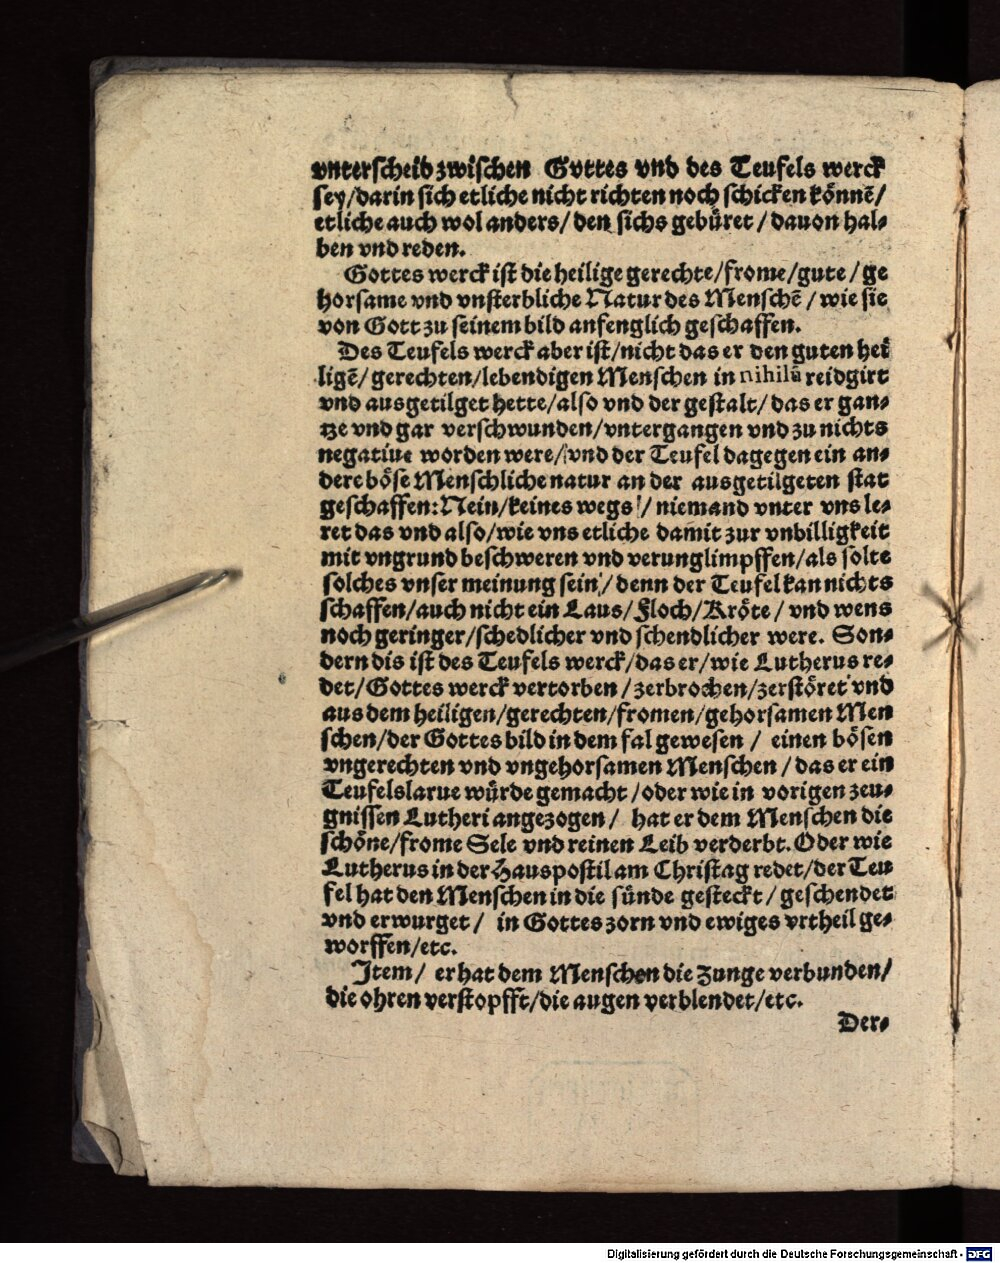 vnterscheid zwischen Gottes vnd des Teufels werck
sey/darin sich etliche nicht richten noch schicken könnē/
etliche auch wol anders/ den sichs gebüret / dauon hal-
ben vnd reden.
Gottes werck ist die heilige gerechte/frome/gute / ge
horsame vnd vnsterbliche Natur des Menschē / wie sie
von Gott zu seinem bild anfenglich geschaffen.
Des Teufels werck aber ist/nicht das er den guten hei
ligē/ gerechten/lebendigen Menschen in nihilū reidgirt
vnd ausgetilget hette/also vnd der gestalt/ das er gan-
tze vnd gar verschwunden/vntergangen vnd zu nichts
negatiue worden were/vnd der Teufel dagegen ein an-
dere böse Menschliche natur an der ausgetilgeten stat
geschaffen: Nein/keines wegs / niemand vnter vns le-
ret das vnd also/wie vns etliche damit zur vnbilligkeit
mit vngrund beschweren vnd verunglimpffen/als solte
solches vnser meinung sein/ denn der Teufel kan nichts
schaffen/auch nicht ein Laus/Floch/Kröte/ vnd wens
noch geringer/schedlicher vnd schendlicher were. Son-
dern dis ist des Teufels werck/das er/wie Lutherus re-
det/Gottes werck vertorben / zerbrochen/zerstöret vnd
aus dem heiligen/gerechten/fromen/gehorsamen Men
schen/der Gottes bild in dem fal gewesen / einen bösen
vngerechten vnd vngehorsamen Menschen / das er ein
Teufelslarue würde gemacht /oder wie in vorigen zeu-
gnissen Lutheri angezogen / hat er dem Menschen die
schöne/frome Sele vnd reinen Leib verderbt. Oder wie
Lutherus in der Hauspostil am Christag redet/der Teu
fel hat den Menschen in die sünde gesteckt / geschendet
vnd erwurget / in Gottes zorn vnd ewiges vrtheil ge-
worffen/etc.
Item/ er hat dem Menschen die Zunge verbunden/
die ohren verstopfft/die augen verblendet/etc.
Der-
Digitalisierung gefördert durch die Deutsche Forschungsgemeinschaft - DFG